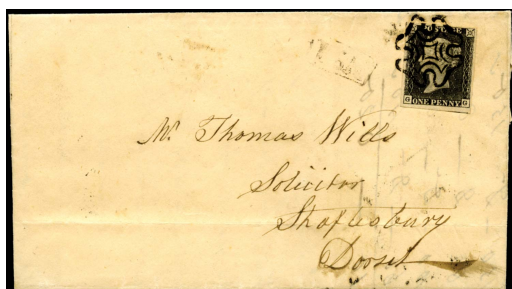 POSTAGE
G ONE PENNY G
Mr Thomas Wills
Solicitor
Shaftesbury
Dorset